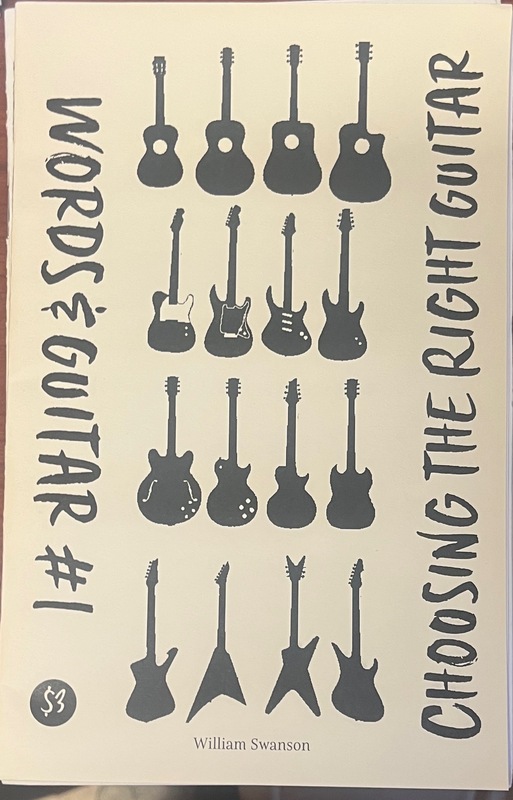 WORDS & GUITAR #1
CHOOSING THE RIGHT GUITAR
$3
William Swanson